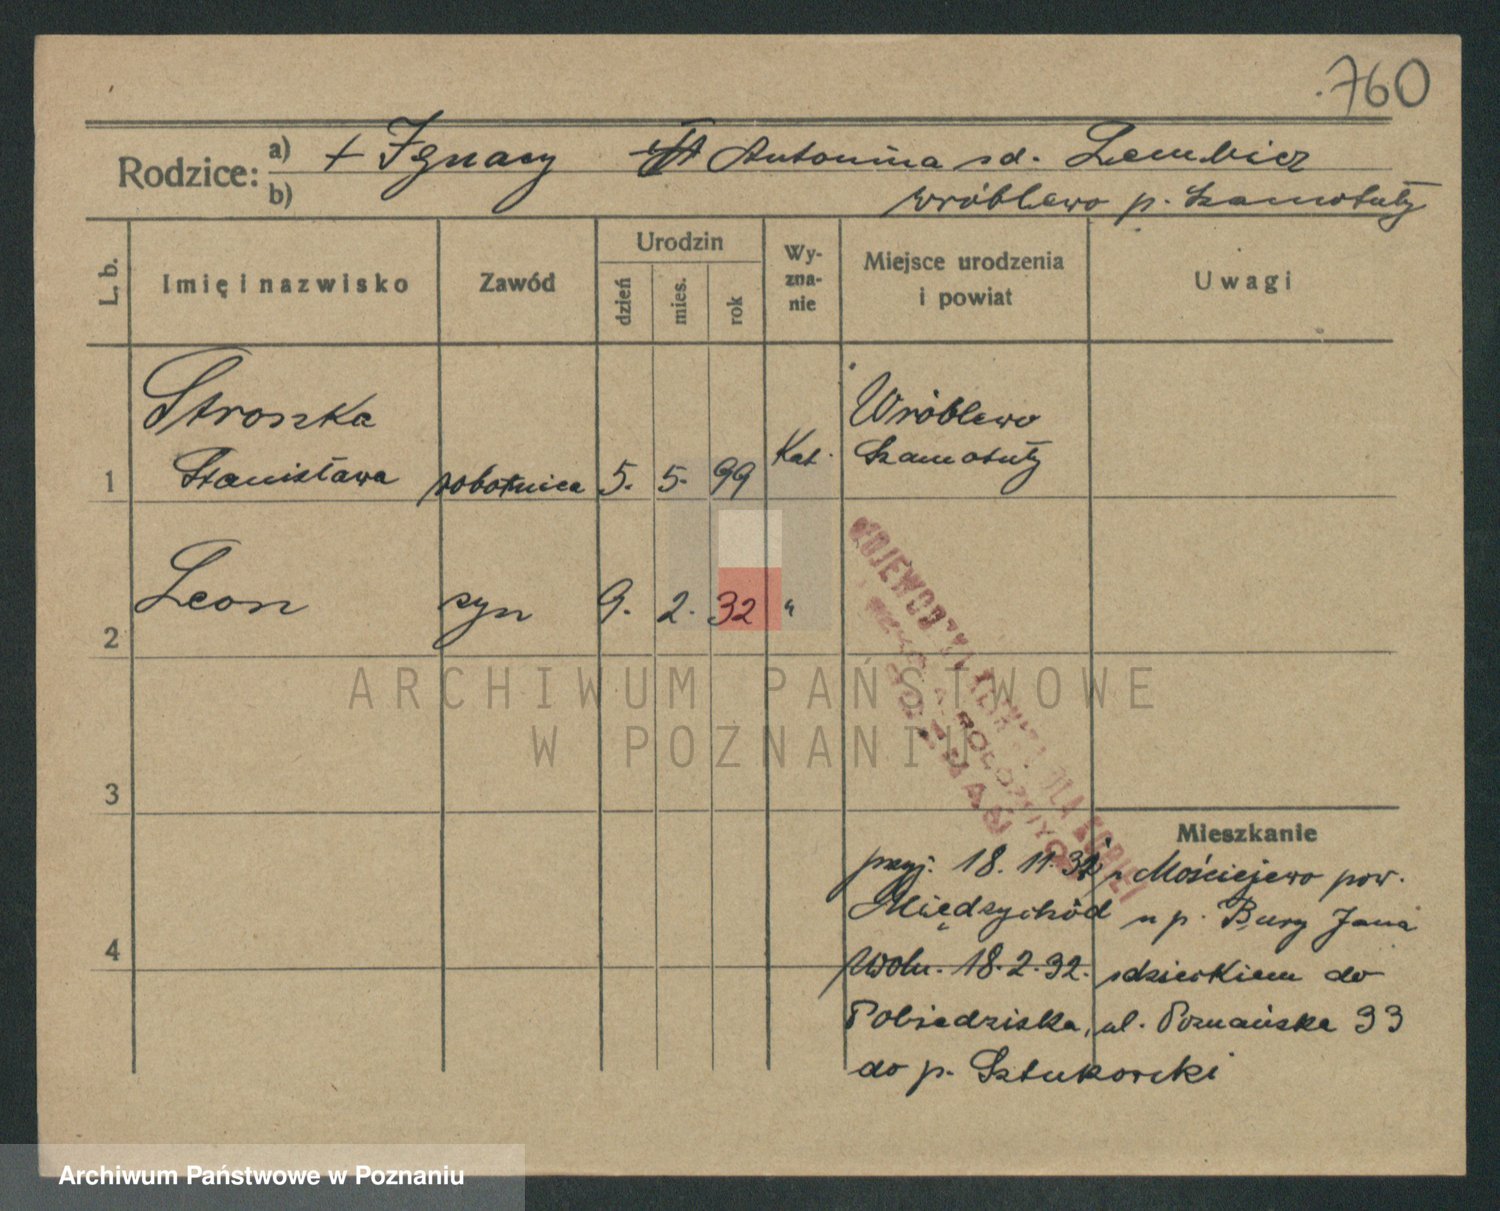 760
Rodzice: a) + Ignacy Antonina zd. Lembicz
b) Wróblewo p. Szamotuły
L. b. Imię i nazwisko Zawód Urodzin dzień mies. rok Wy-zna-nie Miejsce urodzenia i powiat Uwagi
Stroszka Wróblewo
1 Stanisława robotnica 5. 5. 99 Kat. Szamotuły
2 Leon syn 9. 2. 32 "
WOJEWÓDZKA
DLA KOBIET
POZNAŃ
ARCHIWUM PAŃSTWOWE
W POZNANIU
3
Mieszkanie
przyj. 18. 11. 31 Mościejewo pow.
4 Międzychód u p. Bury Jana
Wolu. 18. 2. 32. z dzieckiem do
Pobiedziska, ul. Poznańska 33
do p. Sztukowski
Archiwum Państwowe w Poznaniu